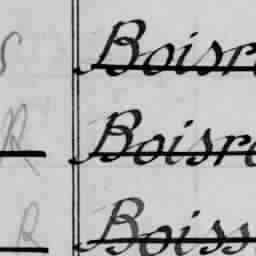 S Boisr
R Boisre
R Boiss